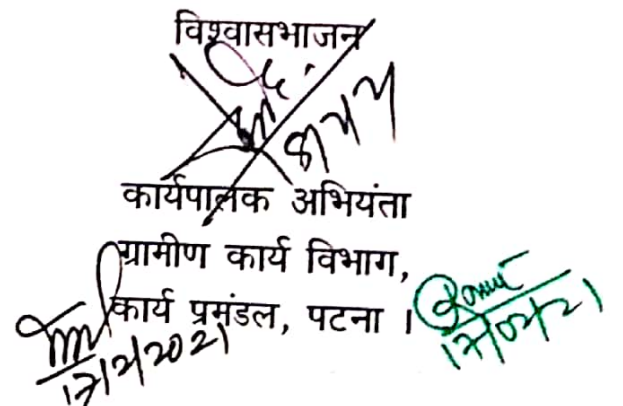 विश्वासभाजन
कार्यपालक अभियंता
ग्रामीण कार्य विभाग,
कार्य प्रमंडल, पटना ।
17/2/2021
17/02/21